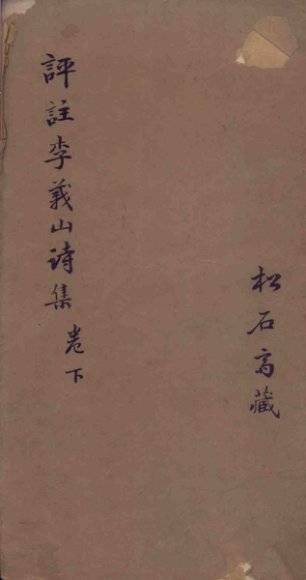 評註李義山詩集 卷下
松石高藏